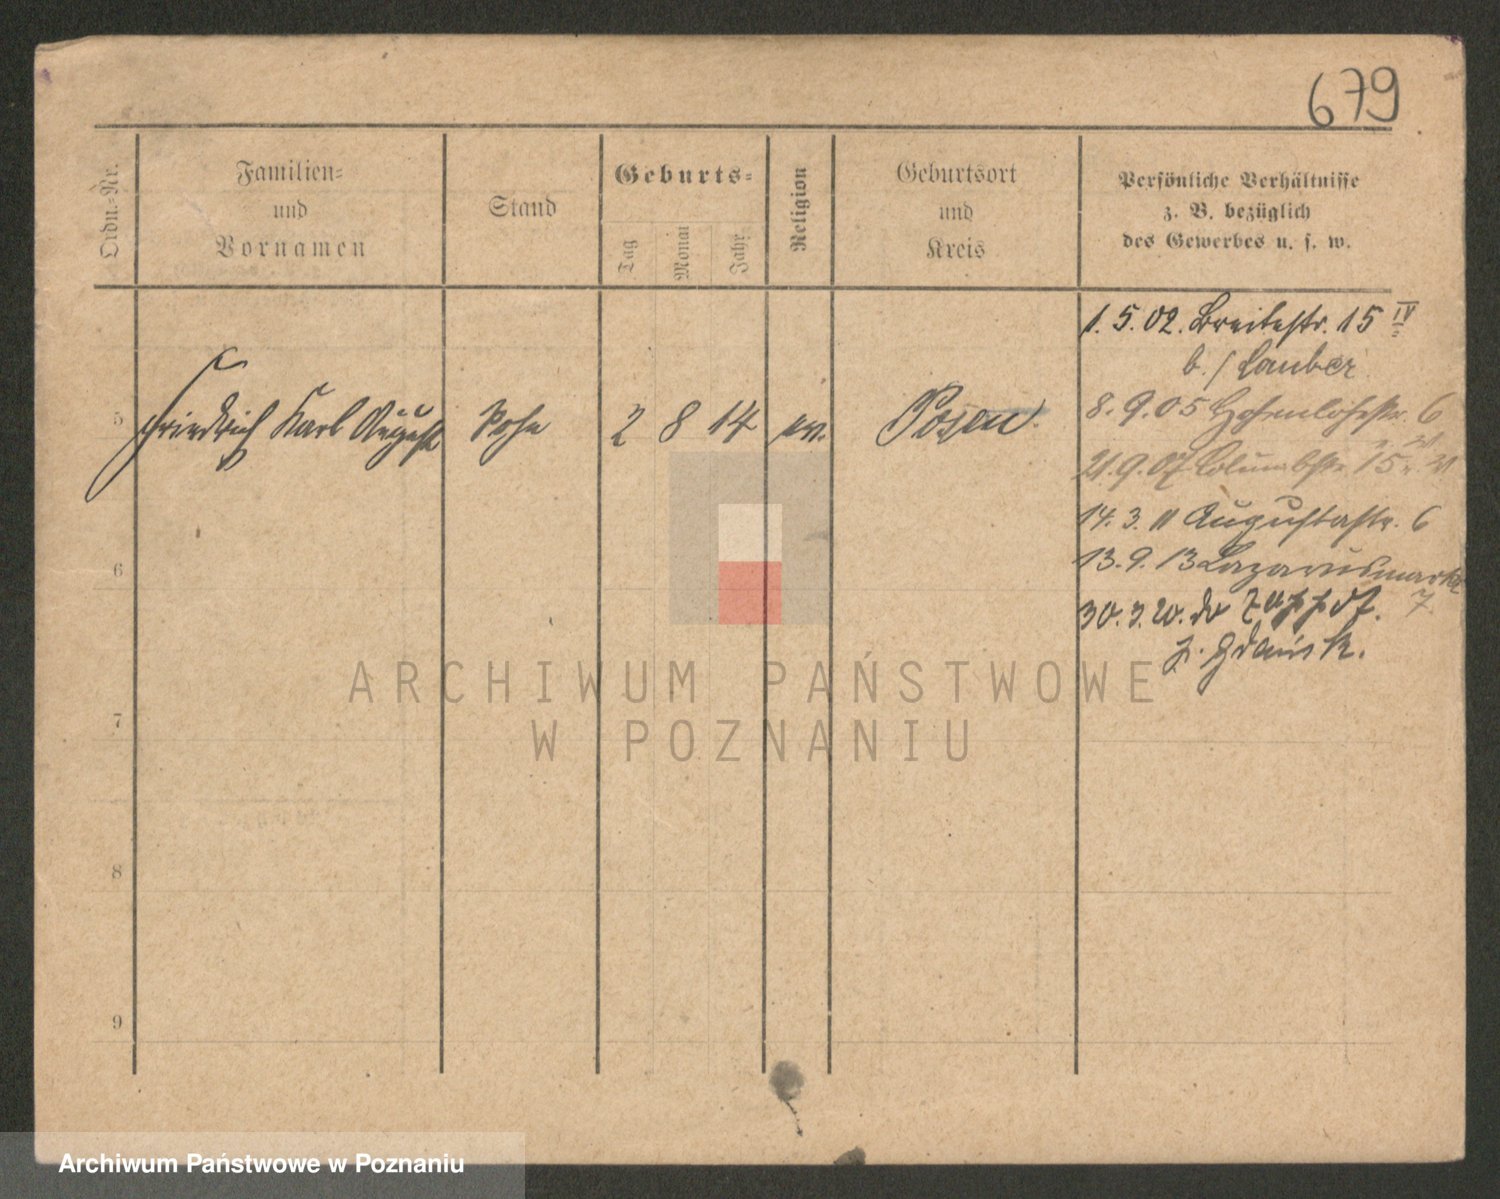 679
Ordn.-Nr.
Familien-
und
Vornamen
Stand
Geburts-
Tag
Monat
Jahr
Religion
Geburtsort
und
Kreis
Persönliche Verhältnisse
z. B. bezüglich
des Gewerbes u. s. w.
1. 5. 02. Breitestr. 15 IV
b./ Lauber
5 Friedrich Karl August Sohn 2 8 14 ev. Posen
8. 9. 05 Hohenlohestr. 6
21. 9. 07 Columbstr. 15
14. 3. 11 Augustastr. 6
13. 9. 13 Lazarusmarkt
7.
30. 3. 20.
Gdańsk.
6
7
8
9
ARCHIWUM PAŃSTWOWE
W POZNANIU
Archiwum Państwowe w Poznaniu